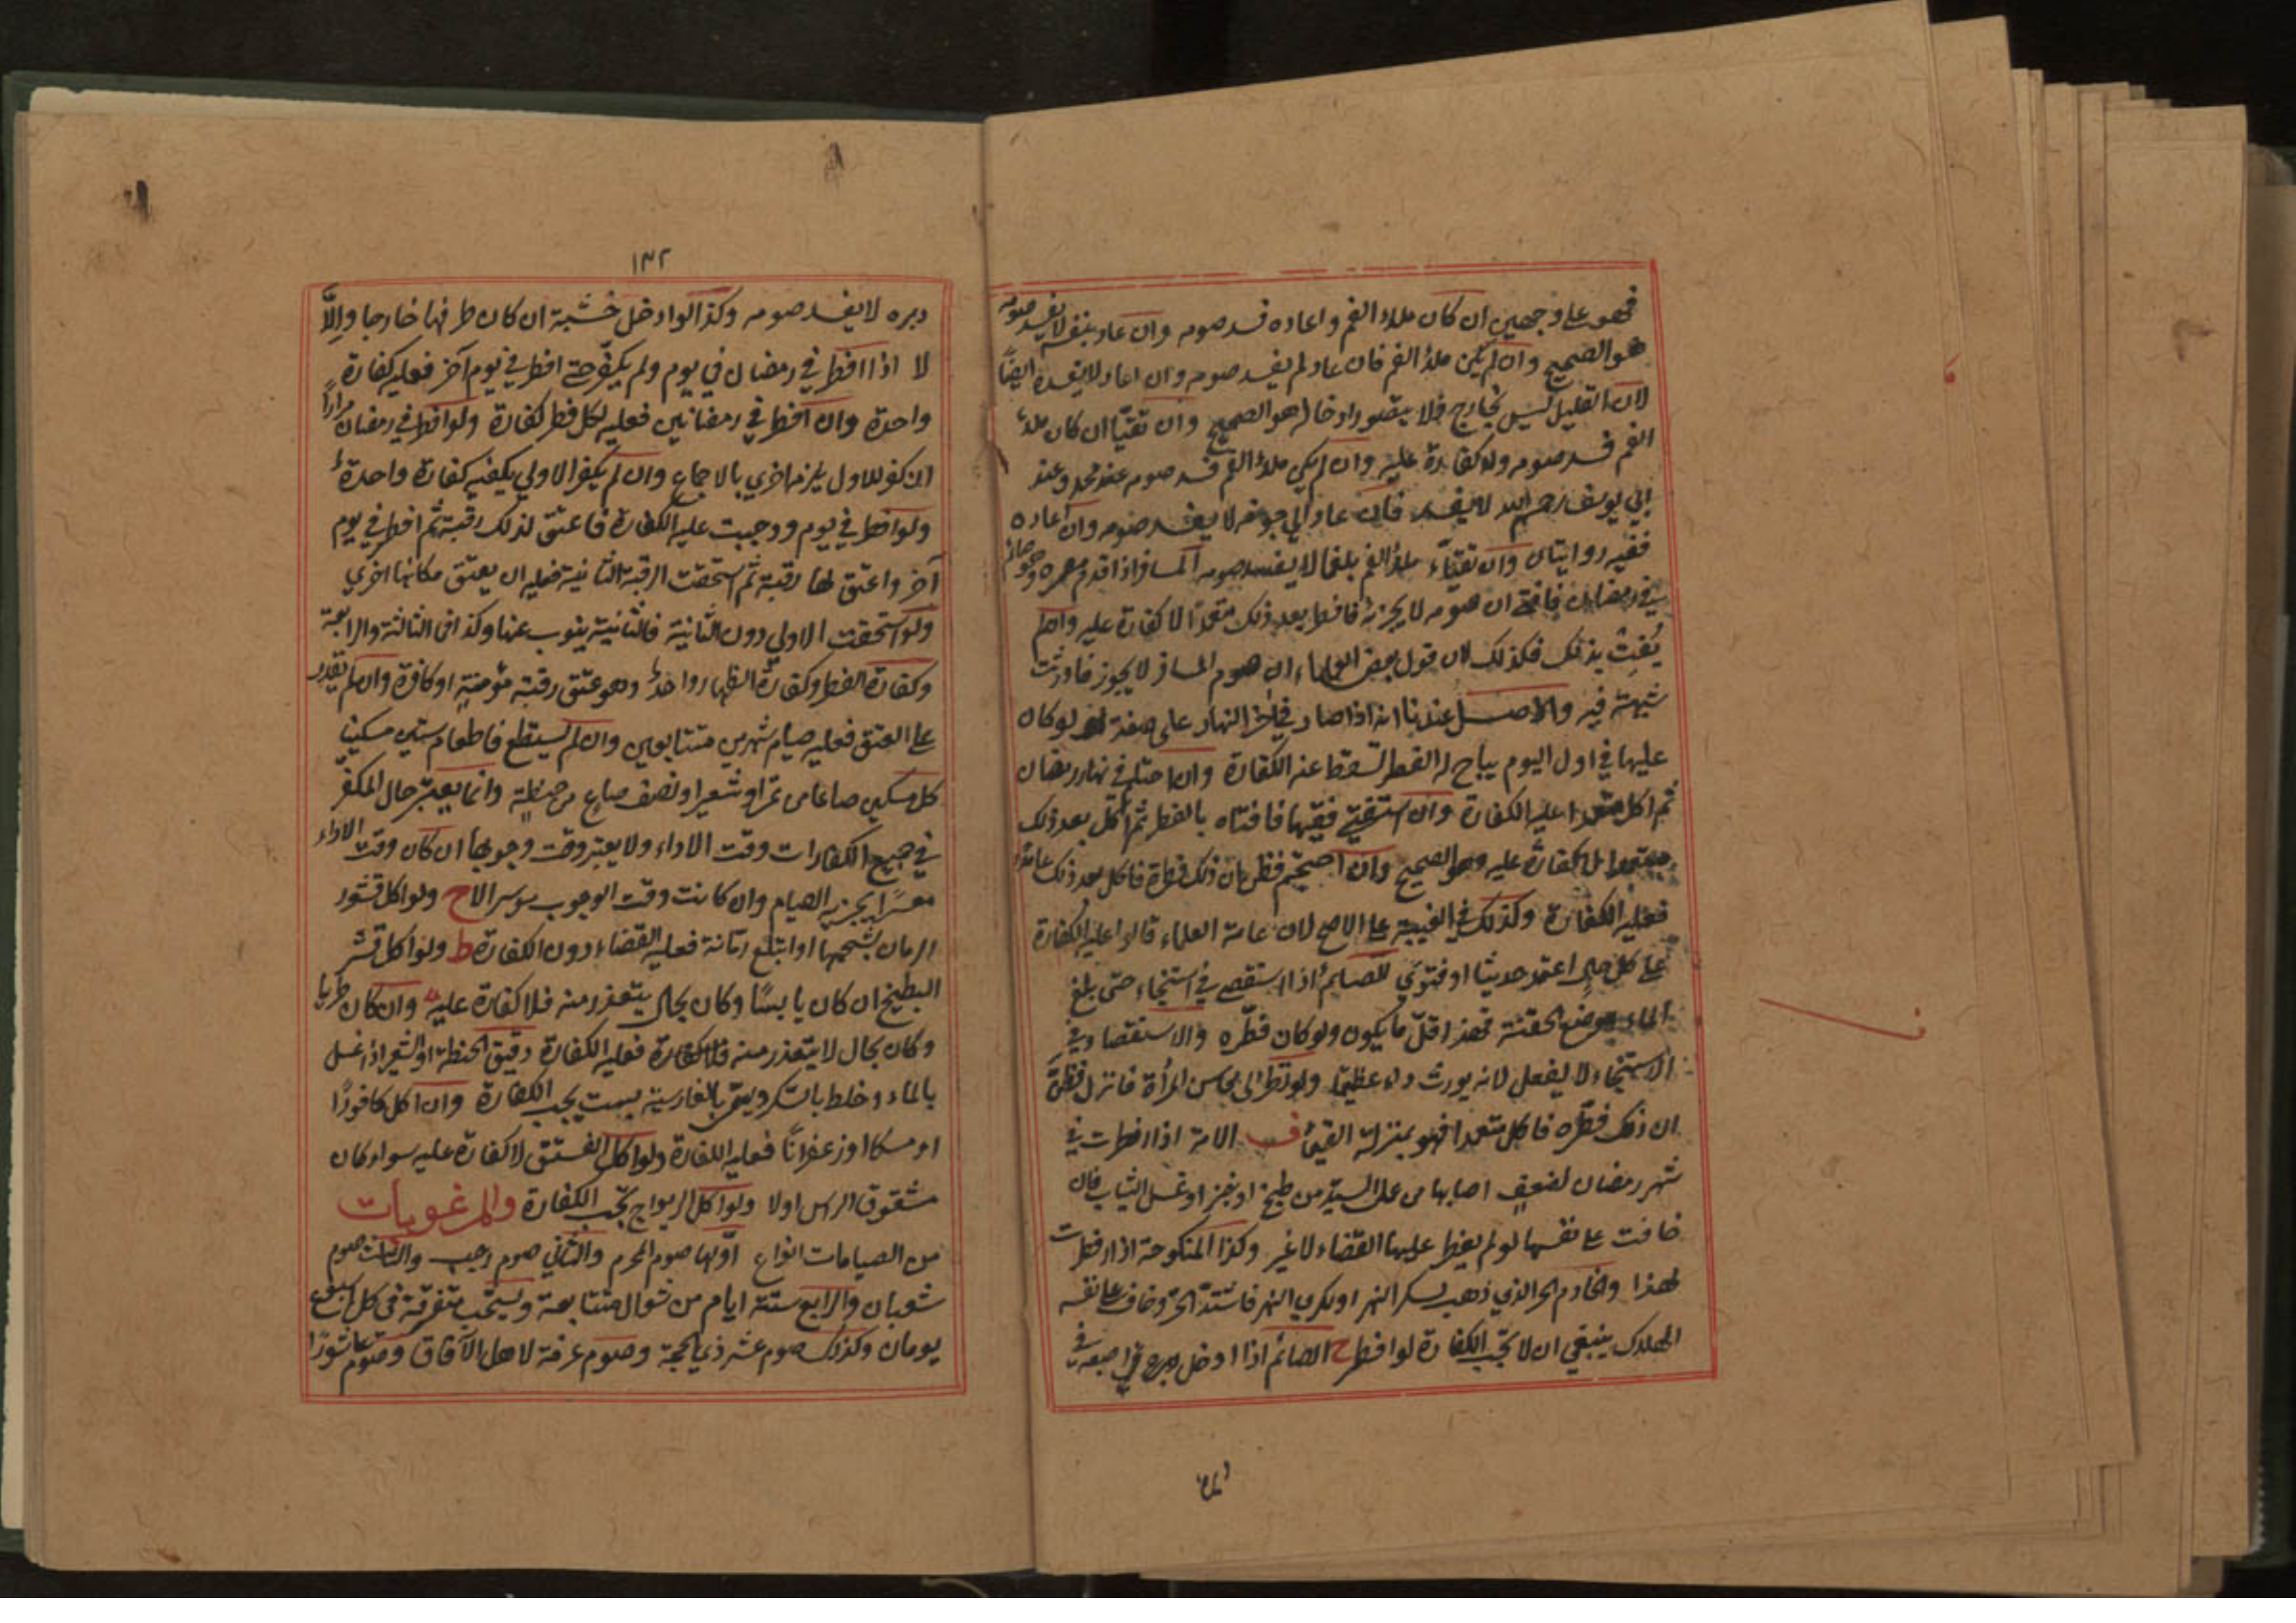 فهو على وجهين ان كان ملاء الفم واعاده فسد صومه وان عاد بنفسه لا يفسد صومه
هو الصحيح وان لم يكن ملاء الفم فان عاد لم يفسد صومه وان اعاد لا يفسده ايضاً
لان القليل ليس بخارج فلا يتصور ادخاله هو الصحيح وان تقيّأ ان كان ملاء
الفم فسد صومه ولا كفارة عليه وان لم يكن ملاء الفم فسد صومه عند محمد وعند
ابي يوسف رحمهم الله لا يفسد فان عاد الى جوفه لا يفسد صومه وان اعاده
ففيه روايتان وان تقيّأ ملاء الفم بلغما لا يفسد صومه المسافر اذا قدم مصره وهو صائم
في رمضان فافتي ان صومه لا يجزئه فافطر بعد ذلك متعمدا لا كفارة عليه وان لم
يُفت بذلك فكذلك لان قول بعض العلماء ان صوم المسافر لا يجوز فاورثت
شبهة فيه والاصل عندنا انه اذا صار في اخر النهار على صفة لو كان
عليها في اول اليوم يباح له الفطر تسقط عنه الكفارة وان احتلم في نهار رمضان
ثم اكل متعمدا عليه الكفارة وان استفتي فقيها فافتاه بالفطر ثم اكل بعد ذلك
متعمدا لا كفارة عليه وهو الصحيح وان احتجم فظن بان ذلك فطره فاكل بعد ذلك عامدا
فعليه الكفارة وكذلك في الغيبة على الاصح لان عامة العلماء قالوا عليه الكفارة
على كل حال اعتمد حديثا او فتوى للصائم اذا استقصى في استنجاء حتى بلغ
الماء موضع الحقنة فهذا اقلّ ما يكون ولو كان فطّره والاستقصاء في
الاستنجاء لا يفعل لانه يورث داء عظيما ولو نظر الى محاسن المرأة فانزل فظن
ان ذلك فطّره فاكل متعمدا فهو بمنزلة القيئ ف الامة اذا افطرت في
شهر رمضان لضعف اصابها من عمل السيد من طبخ او خبز او غسل الثياب فان
خافت على نفسها لو لم يفطر عليها القضاء لا غير وكذا المنكوحة اذا افطرت
لهذا والخادم الحر الذي ذهب لسكر النهر او لكري النهر فاشتد الحر وخاف على نفسه
الهلاك ينبغي ان لا تجب الكفارة لو افطر ح الصائم اذا ادخل اصبعه في
١٣٢
دبره لا يفسد صومه وكذا لو ادخل خشبة ان كان طرفها خارجا والّا
لا اذا افطر في رمضان في يوم ولم يكفّر حتى افطر في يوم آخر فعليه كفارة
واحدة وان افطر في رمضانين فعليه لكل فطر كفارة ولو افطر في رمضان مراراً
ان كفر للاول يلزمه اخرى بالاجماع وان لم يكفر الاولى يكفيه كفارة واحدة
ولو افطر في يوم ووجبت عليه الكفارة فاعتق لذلك رقبة ثم افطر في يوم
آخر واعتق لها رقبة ثم استحقت الرقبة الثانية فعليه ان يعتق مكانها اخرى
ولو استحقت الاولى دون الثانية فالثانية ينوب عنها وكذا في الثالثة والرابعة
وكفارة الفطر وكفارة الظهار واحدة وهو عتق رقبة مؤمنة او كافرة وان لم يقدر
على العتق فعليه صيام شهرين متتابعين وان لم يستطع فاطعام ستين مسكينا
كل مسكين صاعا من تمر او شعير او نصف صاع من حنطة وانما يعتبر حال المكفر
في جميع الكفارات وقت الاداء ولا يعتبر وقت وجوبها ان كان وقت الاداء
معسرًا يجزيه الصيام وان كانت وقت الوجوب موسرا لا ح ولو اكل قشور
الرمان بشحمها او ابتلع رمانة فعليه القضاء دون الكفارة ط ولو اكل قشر
البطيخ ان كان يابسًا وكان بحال يتعذر منه فلا كفارة عليه وان كان طريا
وكان بحال لا يتعذر منه فعليه الكفارة دقيق الحنطة او الشعير اذا غسل
بالماء وخلط بالسكر ويسمى بالفارسية بست يجب الكفارة وان اكل كافورًا
او مسكا او زعفرانًا فعليه الكفارة ولو اكل الفستق لا كفارة عليه سواء كان
مشقوق الراس او لا ولو اكل الريواج تجب الكفارة والمرغوبات
من الصيامات انواع اوّلها صوم المحرم والثاني صوم رجب والثالث صوم
شعبان والرابع ستة ايام من شوال متتابعة ويستحب متفرقة في كل اسبوع
يومان وكذلك صوم عشر ذي الحجة وصوم عرفة لاهل الآفاق وصوم عاشورا